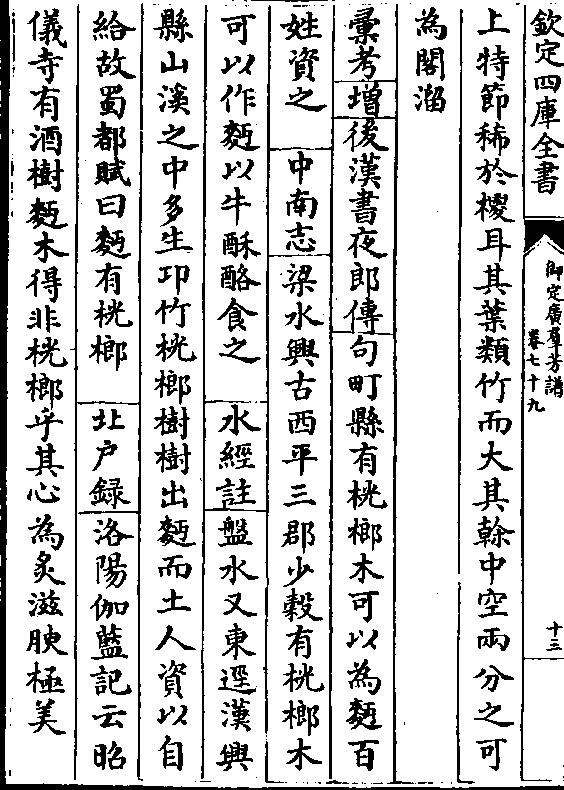 欽定四庫全書
御定廣羣芳譜
卷七十九
十三
上特節稀於椶耳其葉類竹而大其榦中空兩分之可
為閣溜
彚考增後漢書夜郎傳句町縣有桄榔木可以為麪百
姓資之 中南志梁水興古西平三郡少穀有桄榔木
可以作麪以牛酥酪食之 水經註盤水又東逕漢興
縣山溪之中多生邛竹桄榔樹樹出麪而土人資以自
給故蜀都賦曰麪有桄榔 北户録洛陽伽藍記云昭
儀寺有酒樹麪木得非桄榔乎其心為炙滋腴極美